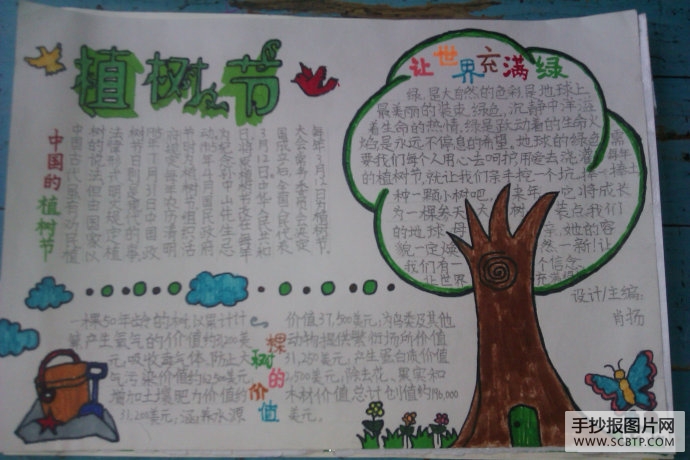 植树节
中国的植树节
中国古代虽有劝民植
树的说法.但由国家以
法律形式明令规定植
树节日则是近代的事
年7月31日中国政
府规定每年农历清明
节时为植树节组织活
动.年4月国民政府
为纪念孙中山先生忌
日将原植树节改在每年
3月12日.中华人民共和
国成立后,全国人民代表
大会常务委员会决定
每年3月12日为植树节.
让世界充满绿
绿,是大自然的色彩,是地球上
最美丽的装束.绿色,沉静中洋溢
着生命的热情.绿是跃动着的生命火
焰,是永远不停息的希望.地球的绿色需
要我们每个人用心去呵护,用爱去浇灌,每年
的植树节,就让我们亲手挖一个坑,捧一捧土
种一颗小树吧,来年,它将成长
为一棵参天大树,装点我们
的地球母亲,她的容
貌一定焕然一新!让
我们有一个信念.
让世界充满绿
设计/主编:
肖扬
一棵树的价值
一棵50年龄的树,以累计计
算,产生氧气的价值约31,200美
元;吸收毒气体,防止大
气污染价值约62,500美元;
增加土壤肥力价值约
31,200美元;涵养水源
价值37,500美元;为鸟类及其他
动物提供繁衍场所价值
31,250美元;产生蛋白质价值
2,500美元,除去花、果实和
木材价值,总计创值约196,000
美元.
手抄报图片网
WWW.SCBTP.COM